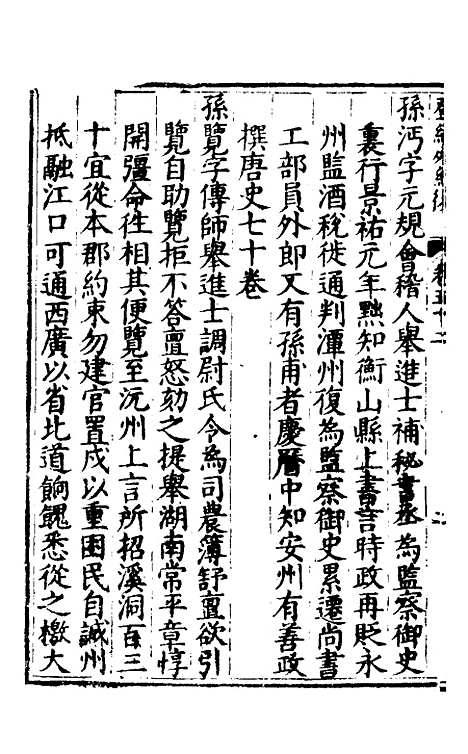 孫沔字元規會稽人舉進士補秘書丞為監察御史
裏行景祐元年黜知衡山縣上書言時政再貶永
州監酒稅徙通判潭州復為監察御史累遷尚書
工部員外郎又有孫甫者慶曆中知安州有善政
撰唐史七十卷
孫覽字傳師舉進士調尉氏令為司農簿舒亶欲引
覽自助覽拒不答亶怒劾之提舉湖南常平章惇
開疆命徃相其便覽至沅州上言所招溪洞百三
十宜從本郡約束勿建官置戍以重困民自誠州
抵融江口可通西廣以省北道餉餽悉從之檄大